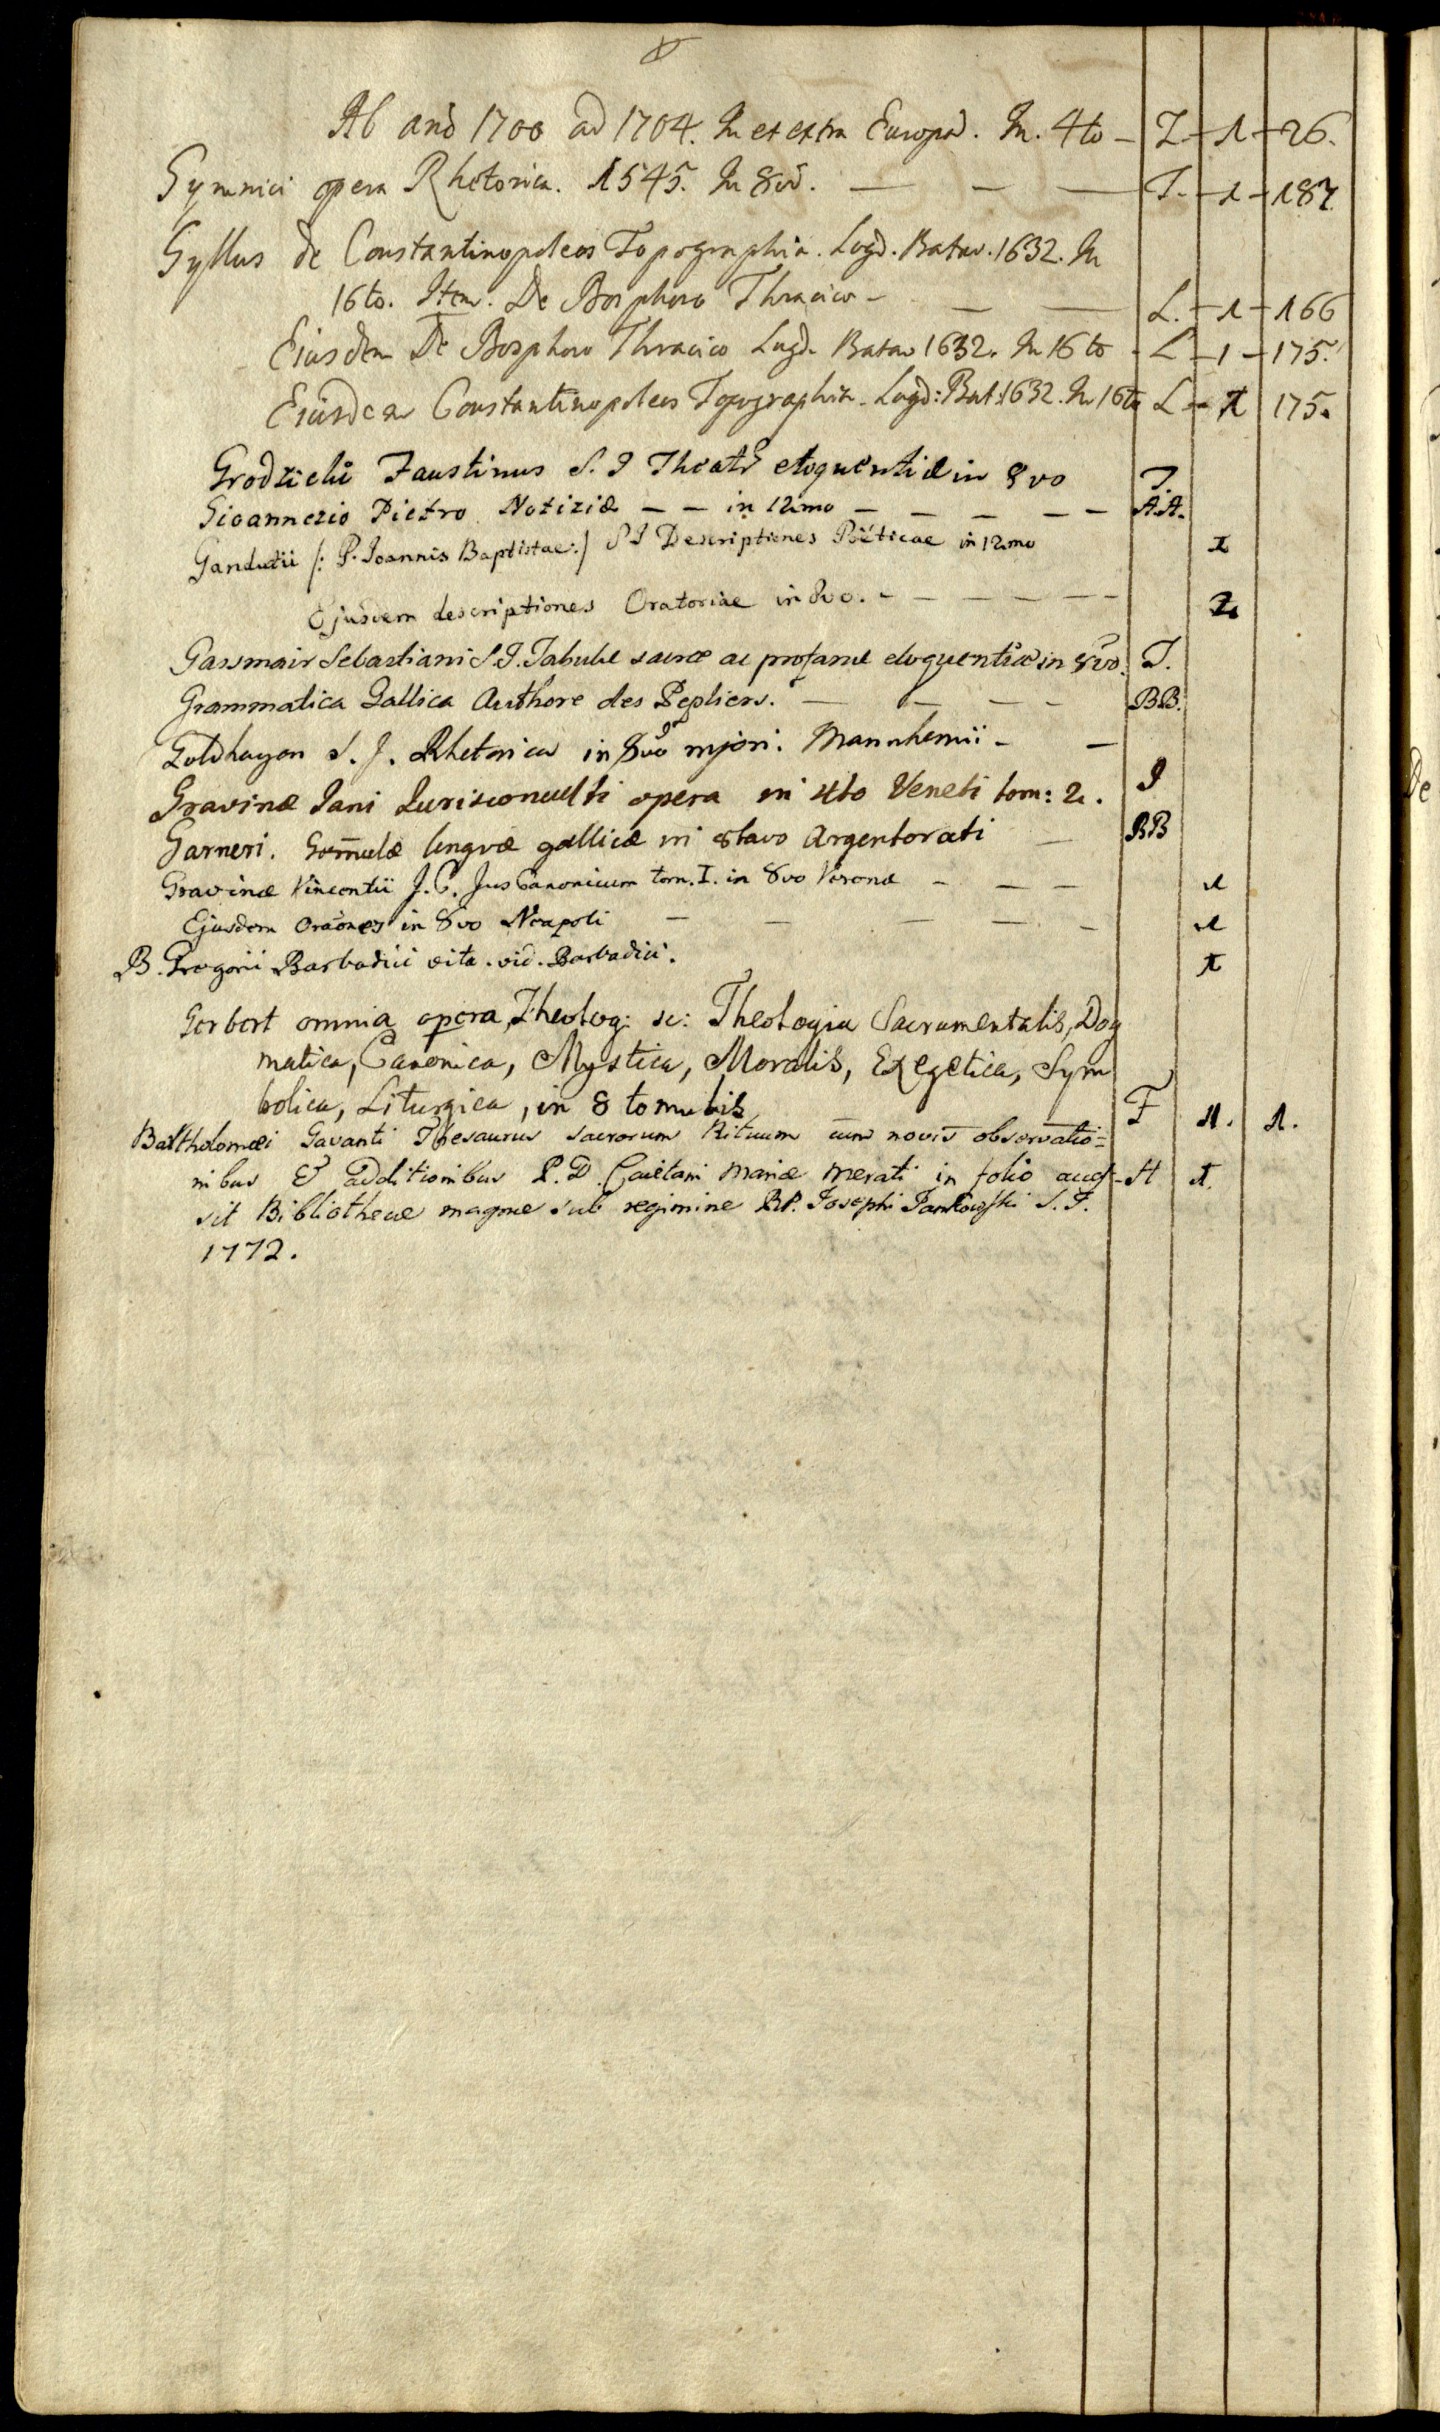 Ab anō 1700 ad 1704. In et extra Europā. In. 4to – Z – 1 – 26.
Gymnici opera Rhetorica. 1545. In 8vō. — — — T. – 1 – 187
Gyllus de Constantinopoleos Topographia. Lugd. Batav. 1632. In
16to. Item. De Bosphoro Thracico – — — L. – 1 – 166
Eiusdem De Bosphoro Thracico Lugd. Batav 1632. In 16to - L – 1 – 175.
Eiusdem Constantinopoleos Topographia. Lugd: Bat: 1632. In 16to L – 1 175.
Faustinus S. J Theatr eloquentiæ in 8vo T.
Gioannezio Pietro Notiziæ – – in 12mo – – – – – A.A.
Gandutii /: P. Joannis Baptistae:/ S J Descriptiones Poëticae in 12mo 1
Ejusdem descriptiones Oratoriae in 8vo. – – – – – – 2
Gassmair Sebastiani S.J. Tabulæ sacræ ac profanæ eloquentiæ in 8vo. T.
Grammatica Gallica Authore des Pepliers. — – – – BB.
Goldhagen S. J. Rhetorica in 8vo mjori. Mannhemii – –
Gravinæ Jani Jurisconsulti opera in 4to Veneti tom: 2. J
Garneri. linguæ gallicæ in 8tavo Argentorati — BB
Gravinæ Vincentii J. C. Jus Canonicum tom. I. in 8vo Veronæ – – – 1
Ejusdem Orāōnes in 8vo Neapoli — – – – – 1
B. Gregorii Barbadici vita. vid. Barbadici. 1
Gerbert omnia opera, Theolog: sc: Theologia Sacramentalis, Dog
matica, Canonica, Mystica, Moralis, Exegetica, Sym
bolica, Liturgica, in 8 tomulis F 1. 1.
Bartholomæi Gavanti Thesaurus sacrorum Rituum cum novis observatio=
nibus & additionibus P. D. Caietani Mariæ Merati in folio acces- H 1.
sit Bibliothecæ magnæ sub regimine RP. Josephi Pankowski S. J.
1772.